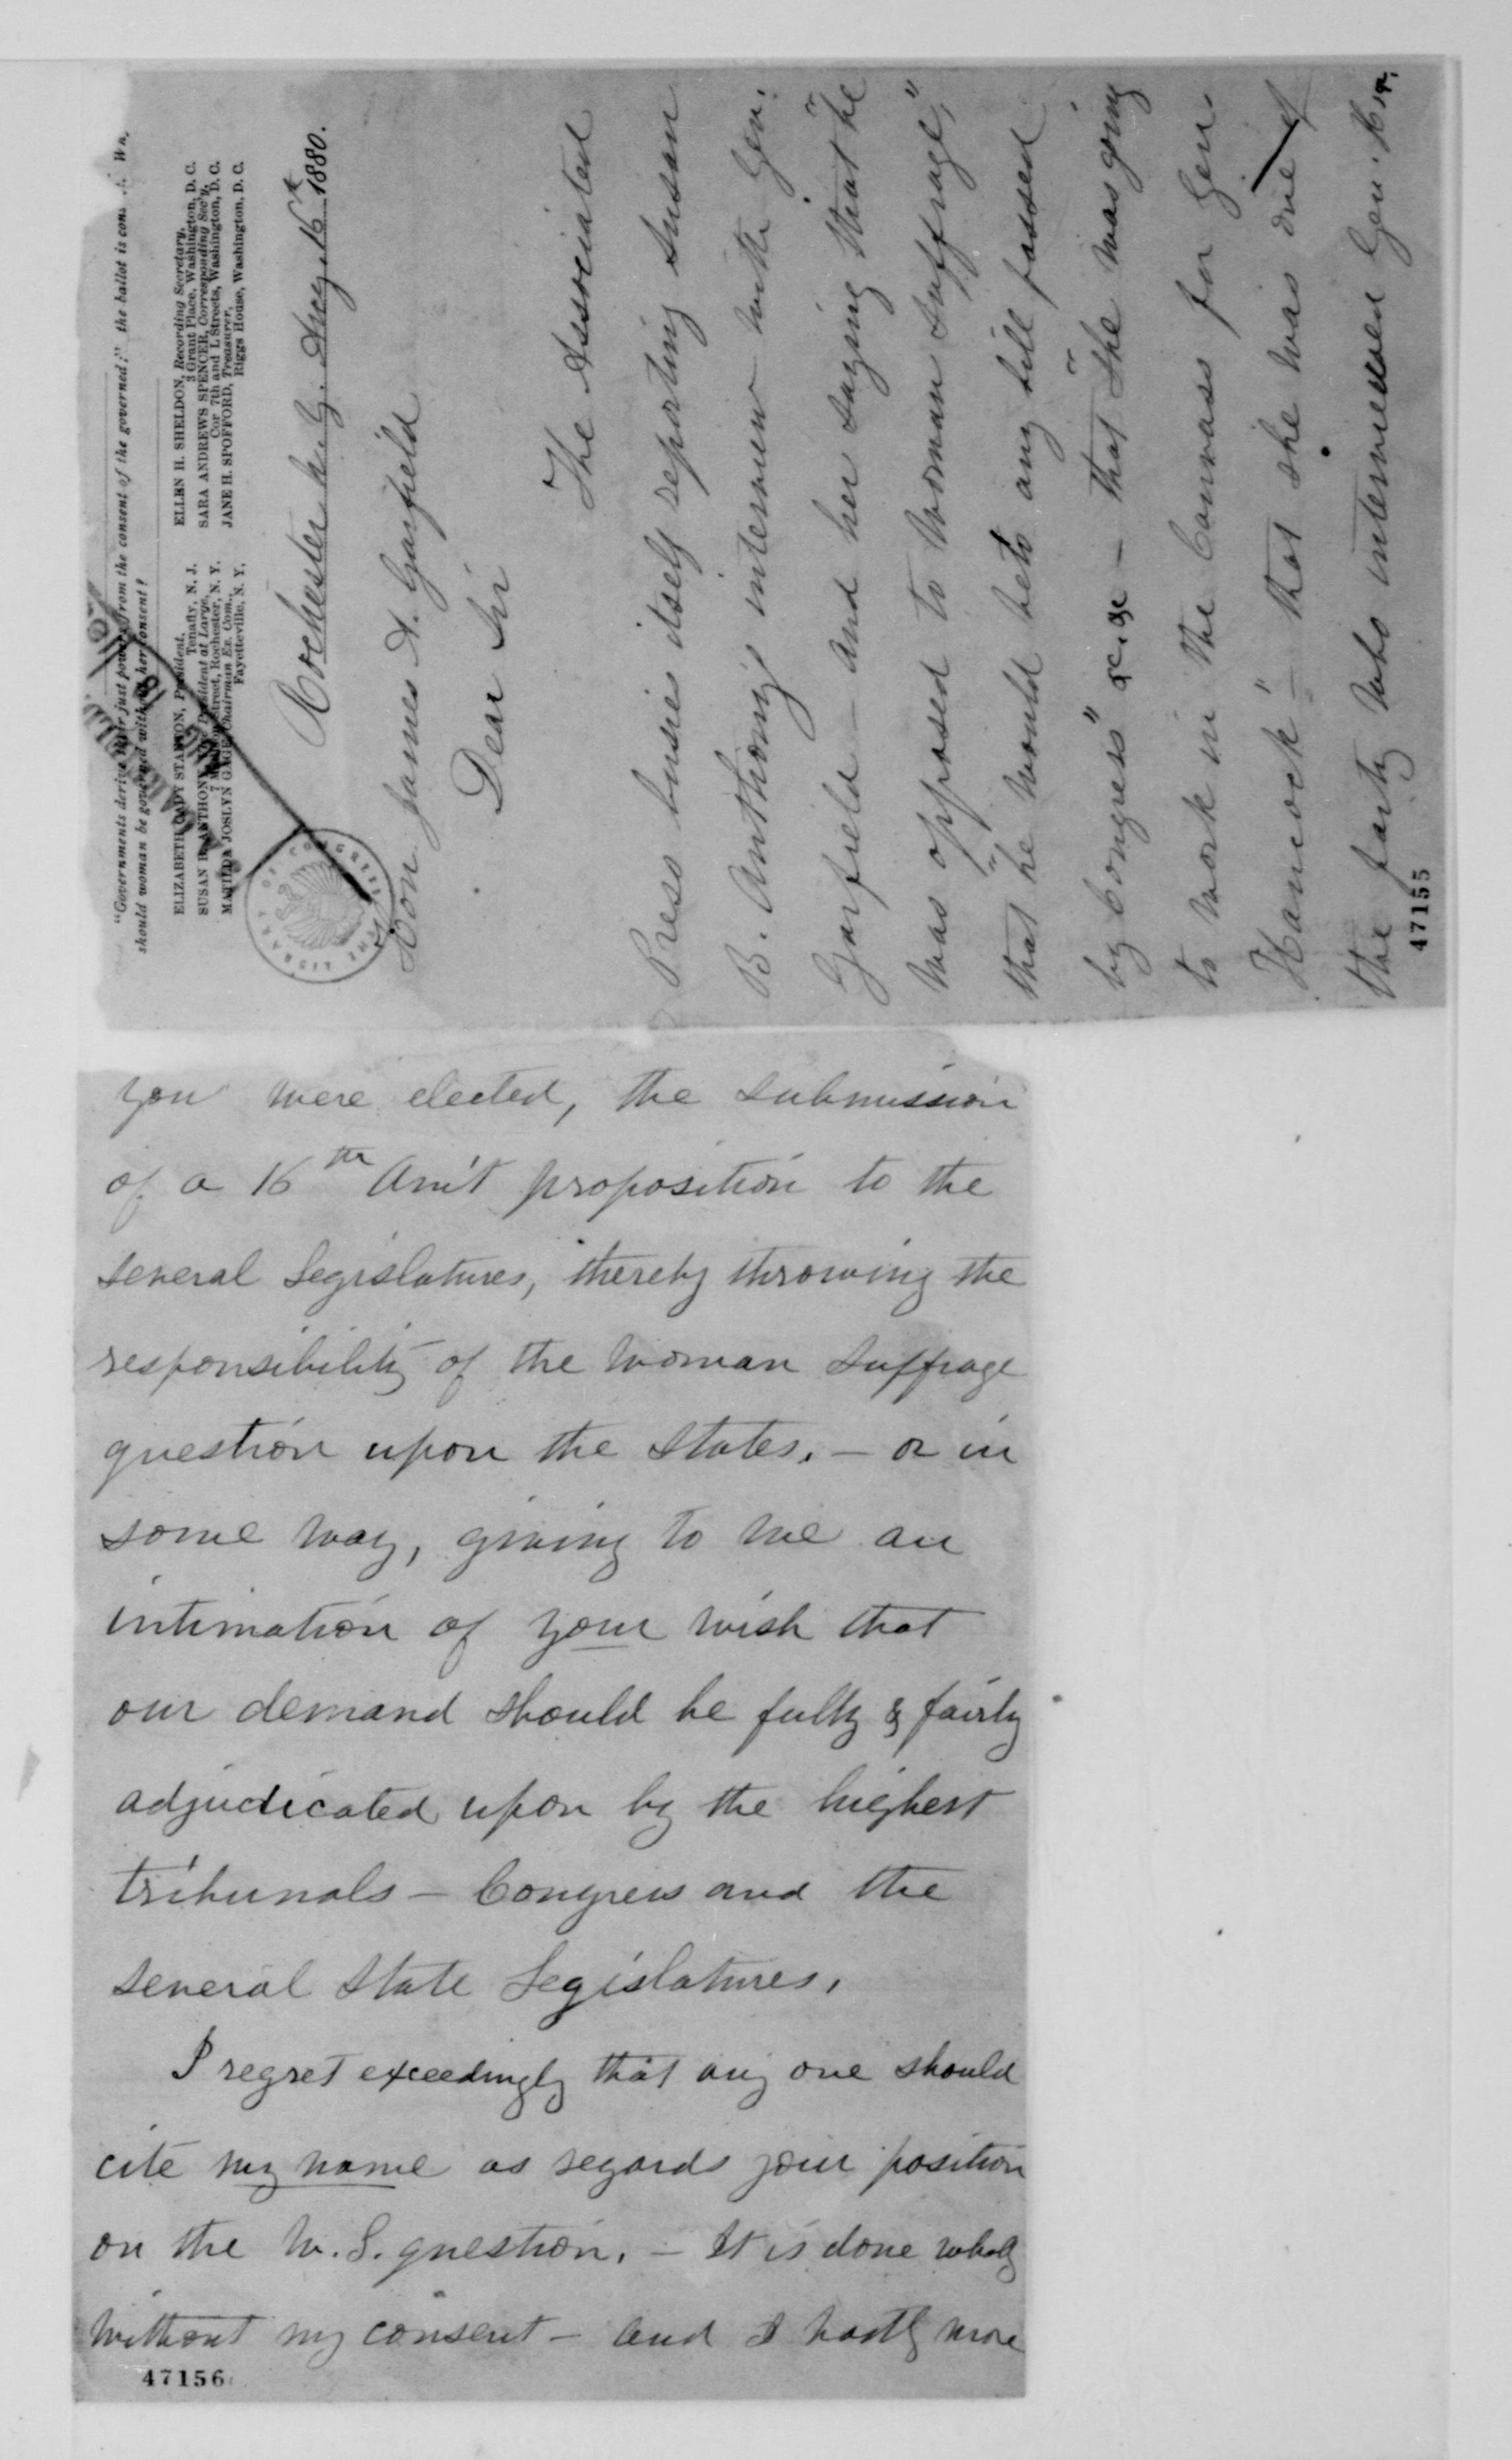 "Governments derive their just powers from the consent of the governed;" the ballot is con
should woman be governed without her consent?
ELIZABETH CADY STANTON, President,
Tenafly, N. J.
SUSAN B. ANTHONY, President at Large,
Street, Rochester, N. Y.
MATILDA JOSLYN GAGE, Chairman Ex. Com.,
Fayetteville, N. Y.
ELLEN H. SHELDON, Recording Secretary,
3 Grant Place, Washington, D. C.
SARA ANDREWS SPENCER, Corresponding Sec'y,
Cor 7th and L Streets, Washington, D. C.
JANE H. SPOFFORD, Treasurer,
Riggs House, Washington, D. C.
LIBRARY OF CONGRESS
Rochester N. Y. Aug. 16th 1880.
Hon James A. Garfield
Dear Sir
The Associated
Press busies itself reporting Susan
B. Anthony's interview with Gen.
Garfield - and her saying that "he
was opposed to Woman Suffrage,"
that "he would veto any bill passed
by Congress" &c, &c - that "she was going
to work in the Canvass for Gen.
Hancock" - that she was one of
the party who interviewed Gen. H
47155
you were elected, the submission
of a 16th Am't proposition to the
several Legislatures, thereby throwing the
responsibility of the woman suffrage
question upon the States. - or in
some way, giving to me an
intimation of your wish that
our demand should be fully & fairly
adjudicated upon by the highest
tribunals - Congress and the
several State Legislatures.
I regret exceedingly that any one should
cite my name as regards your position
on the W. S. question. - It is done wholly
without my consent - and I hartly more
47156